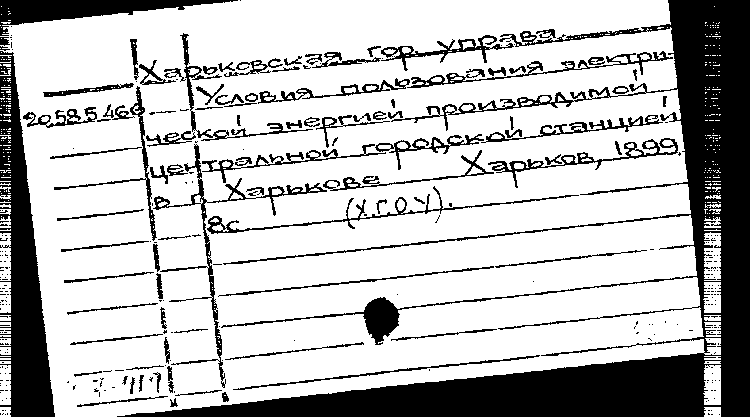 Харьковская гор. управа.
20.585.460 Условия пользования электри-
ческой энергией, производимой
центральной городской станцией
в г. Харькове Харьков, 1899
8с (Х.Г.О.У).